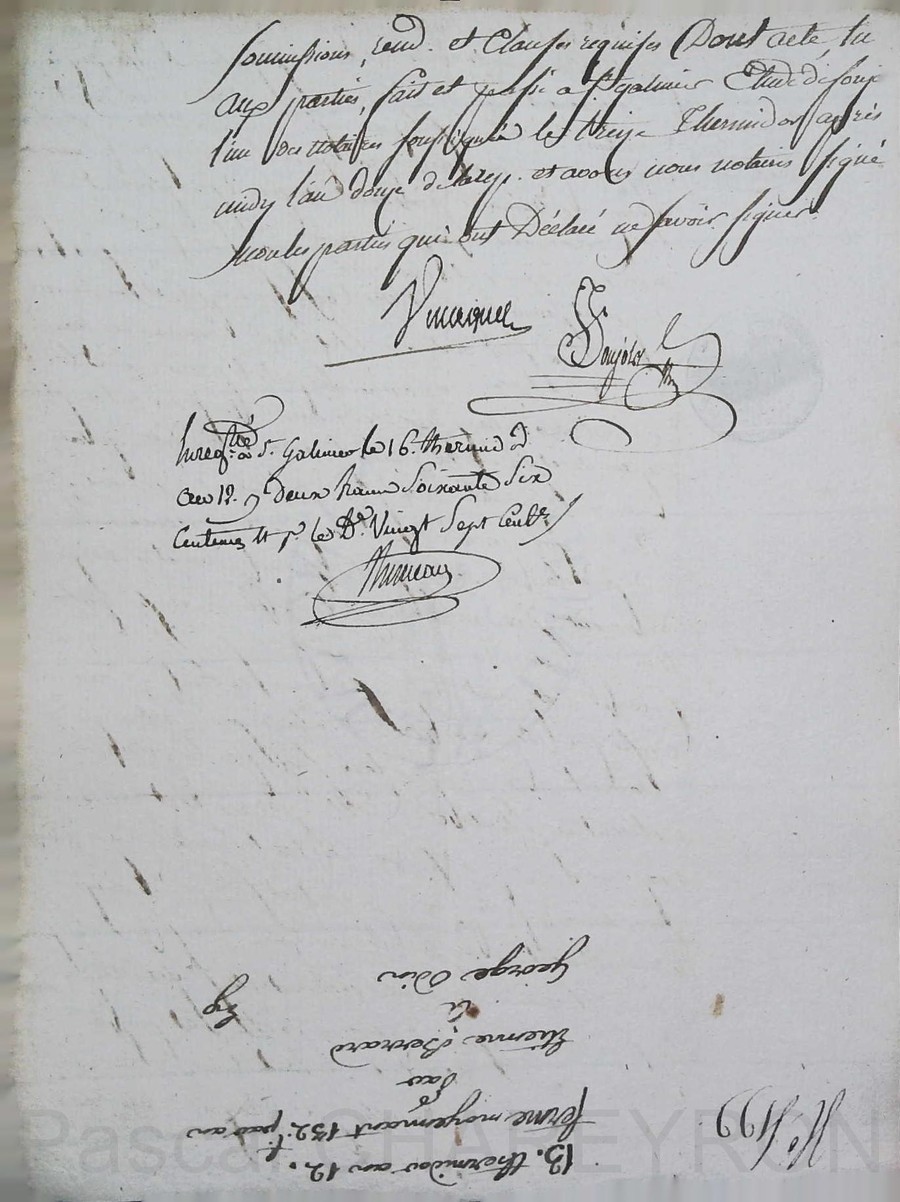 soumissions, rend. et Clauses requises Dont acte, lu
aux parties, fait et passé a St. galmier Etude de Souj
l'un des notaires soussignés le treize Thermidor après
midy l'an douze de la rep. et avons nous notaires signé
non les parties qui ont Déclaré ne savoir signer.
Enregtré. à St. Galmier le 16. thermid
an 12. deux francs Soixante Six
Centimes et pr. le De. Vingt Sept Cent.
Thimeau
No. 499
13. thermidor an 12.
ferme moyennant 132 par an
par
Etienne Berrard
à
George Odin
Pascal CHAPEYRON